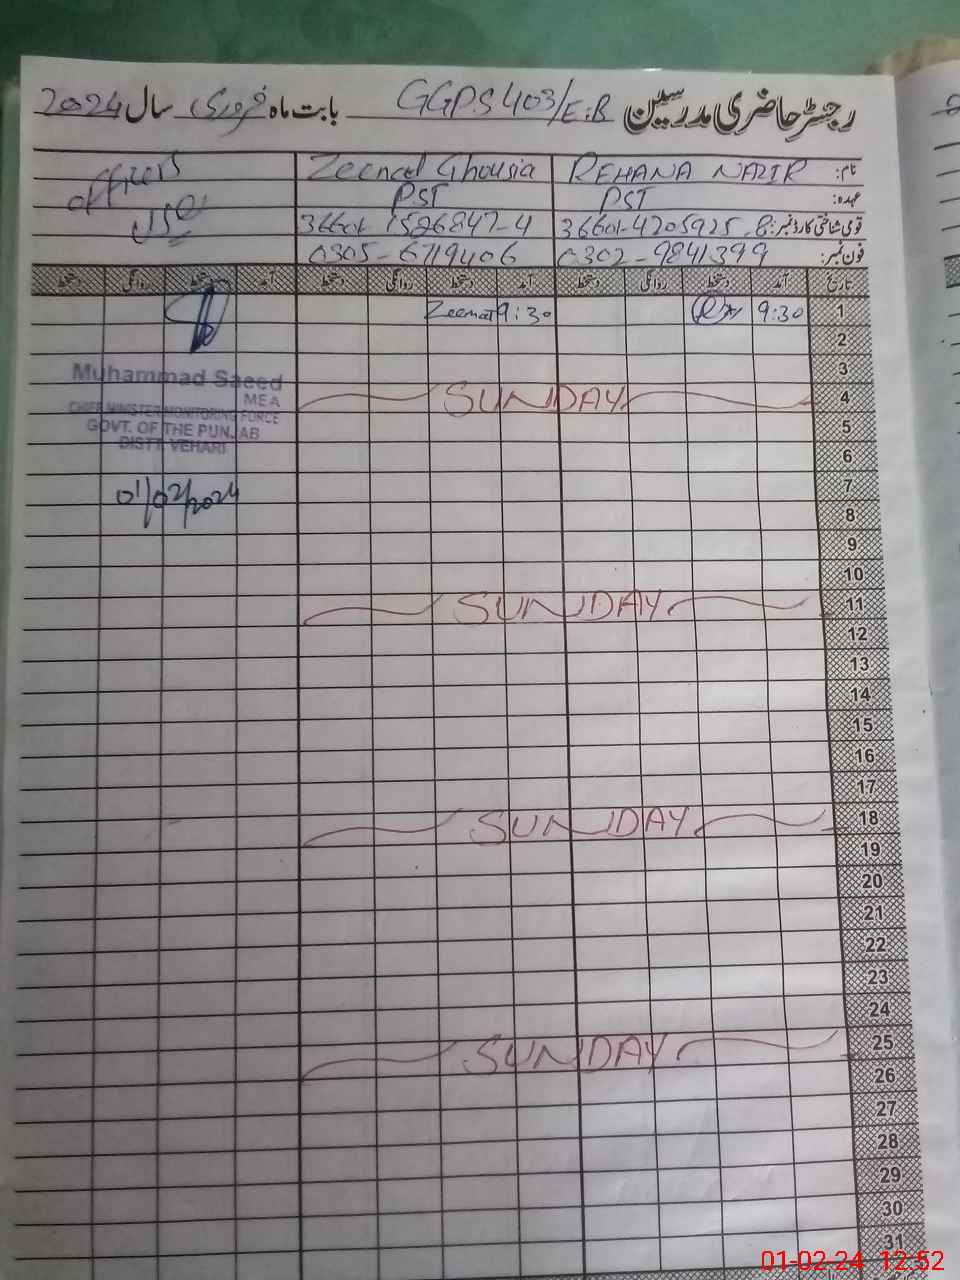 رجسٹر حاضری مدرسین GGPS 403/E.B بابت ماہ فروری سال 2024
نام: REHANA NAZIR Zeenat Ghousia officers
عہدہ: PST PST
قومی شناختی کارڈ نمبر: 36601-4205925-8 36601-1526847-4
فون نمبر: 0302-9841399 0305-6719406
تاریخ آمد دستخط روانگی دستخط آمد دستخط روانگی دستخط آمد دستخط روانگی دستخط
1 9:30 9:30 Zeenat
2
3
Muhammad Saeed
MEA
4 SUNDAY
CHIEF MINISTER MONITORING FORCE
GOVT. OF THE PUNJAB
5
DISTT. VEHARI
6
7 01/02/2024
8
9
10
11 SUNDAY
12
13
14
15
16
17
18 SUNDAY
19
20
21
22
23
24
25 SUNDAY
26
27
28
29
30
31
01-02-24 12:52